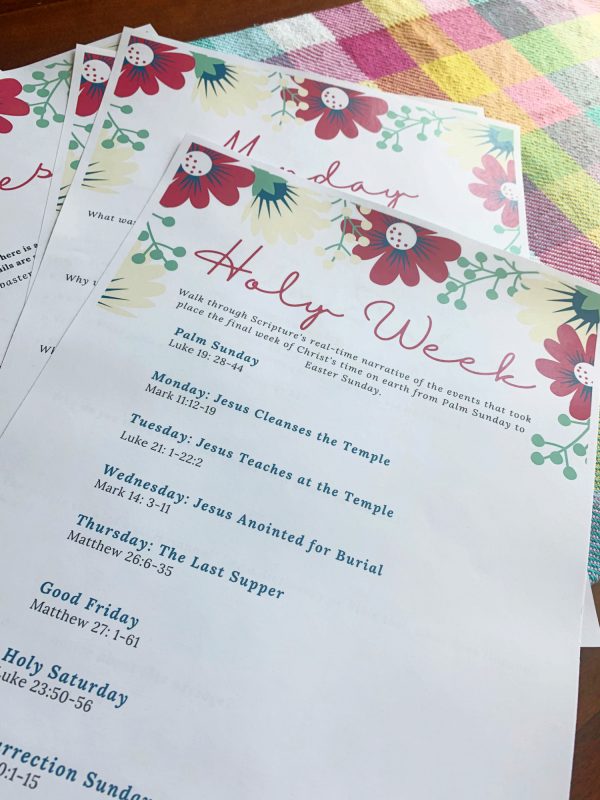 es
here is a
ails are
Easter
Monday
What was
Why
Wh
Holy Week
Walk through Scripture's real-time narrative of the events that took
place the final week of Christ's time on earth from Palm Sunday to
Easter Sunday.
Palm Sunday
Luke 19: 28-44
Monday: Jesus Cleanses the Temple
Mark 11:12-19
Tuesday: Jesus Teaches at the Temple
Luke 21: 1-22:2
Wednesday: Jesus Anointed for Burial
Mark 14: 3-11
Thursday: The Last Supper
Matthew 26:6-35
Good Friday
Matthew 27: 1-61
Holy Saturday
Luke 23:50-56
rrection Sunday
0:1-15